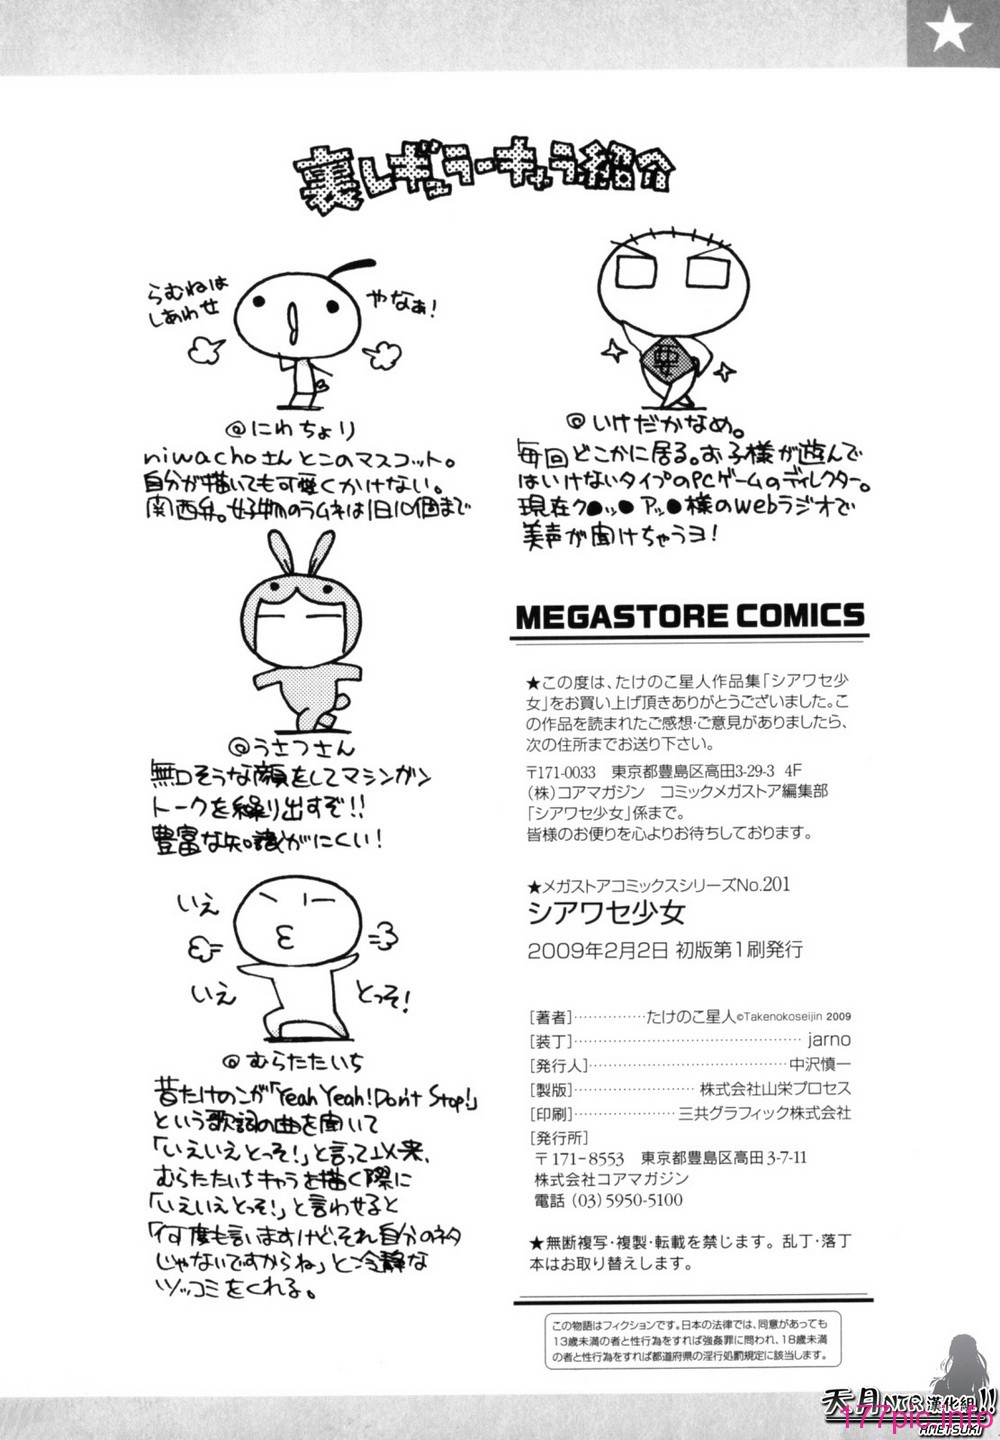 裏レギュラーキャラ紹介
らむねは
しあわせ
やなぁ!
@にわちょり
niwachoさんとこのマスコット。
自分が描いても可愛くかけない。
関西弁。好物のラムネは1日10個まで
@うさつさん
無口そうな顔をしてマシンガン
トークを繰り出すぞ!!
豊富な知識がにくい!
いえ
いえ
とっそ!
@むらたたいち
昔たけのこが「Yeah Yeah!Don't Stop!」
という歌詞の曲を聞いて
「いえいえとっそ!」と言って以来、
むらたたいちキャラを描く際に
「いえいえとっそ!」と言わせると
「何度も言いますけど、それ自分のネタ
じゃないですからね」と冷静な
ツッコミをくれる。
@いけだかなめ。
毎回どこかに居る。お子様が遊んで
はいけないタイプのPCゲームのディレクター。
現在ク●ッ● アッ●様のwebラジオで
美声が聞けちゃうヨ!
MEGASTORE COMICS
★この度は、たけのこ星人作品集「シアワセ少
女」をお買い上げ頂きありがとうございました。こ
の作品を読まれたご感想・ご意見がありましたら、
次の住所までお送り下さい。
〒171-0033 東京都豊島区高田3-29-3 4F
(株)コアマガジン コミックメガストア編集部
「シアワセ少女」係まで。
皆様のお便りを心よりお待ちしております。
★メガストアコミックスシリーズNo.201
シアワセ少女
2009年2月2日 初版第1刷発行
[著者]……………たけのこ星人©Takenokoseijin 2009
[装丁]……………………………………jarno
[発行人]…………………………………中沢慎一
[製版]……………………株式会社山栄プロセス
[印刷]…………………三共グラフィック株式会社
[発行所]
〒171-8553 東京都豊島区高田3-7-11
株式会社コアマガジン
電話 (03)5950-5100
★無断複写・複製・転載を禁じます。乱丁・落丁
本はお取り替えします。
この物語はフィクションです。日本の法律では、同意があっても
13歳未満の者と性行為をすれば強姦罪に問われ、18歳未満
の者と性行為をすれば都道府県の淫行処罰規定に該当します。
天月NTR漢化組!!
AMETSUKI
177pic.info